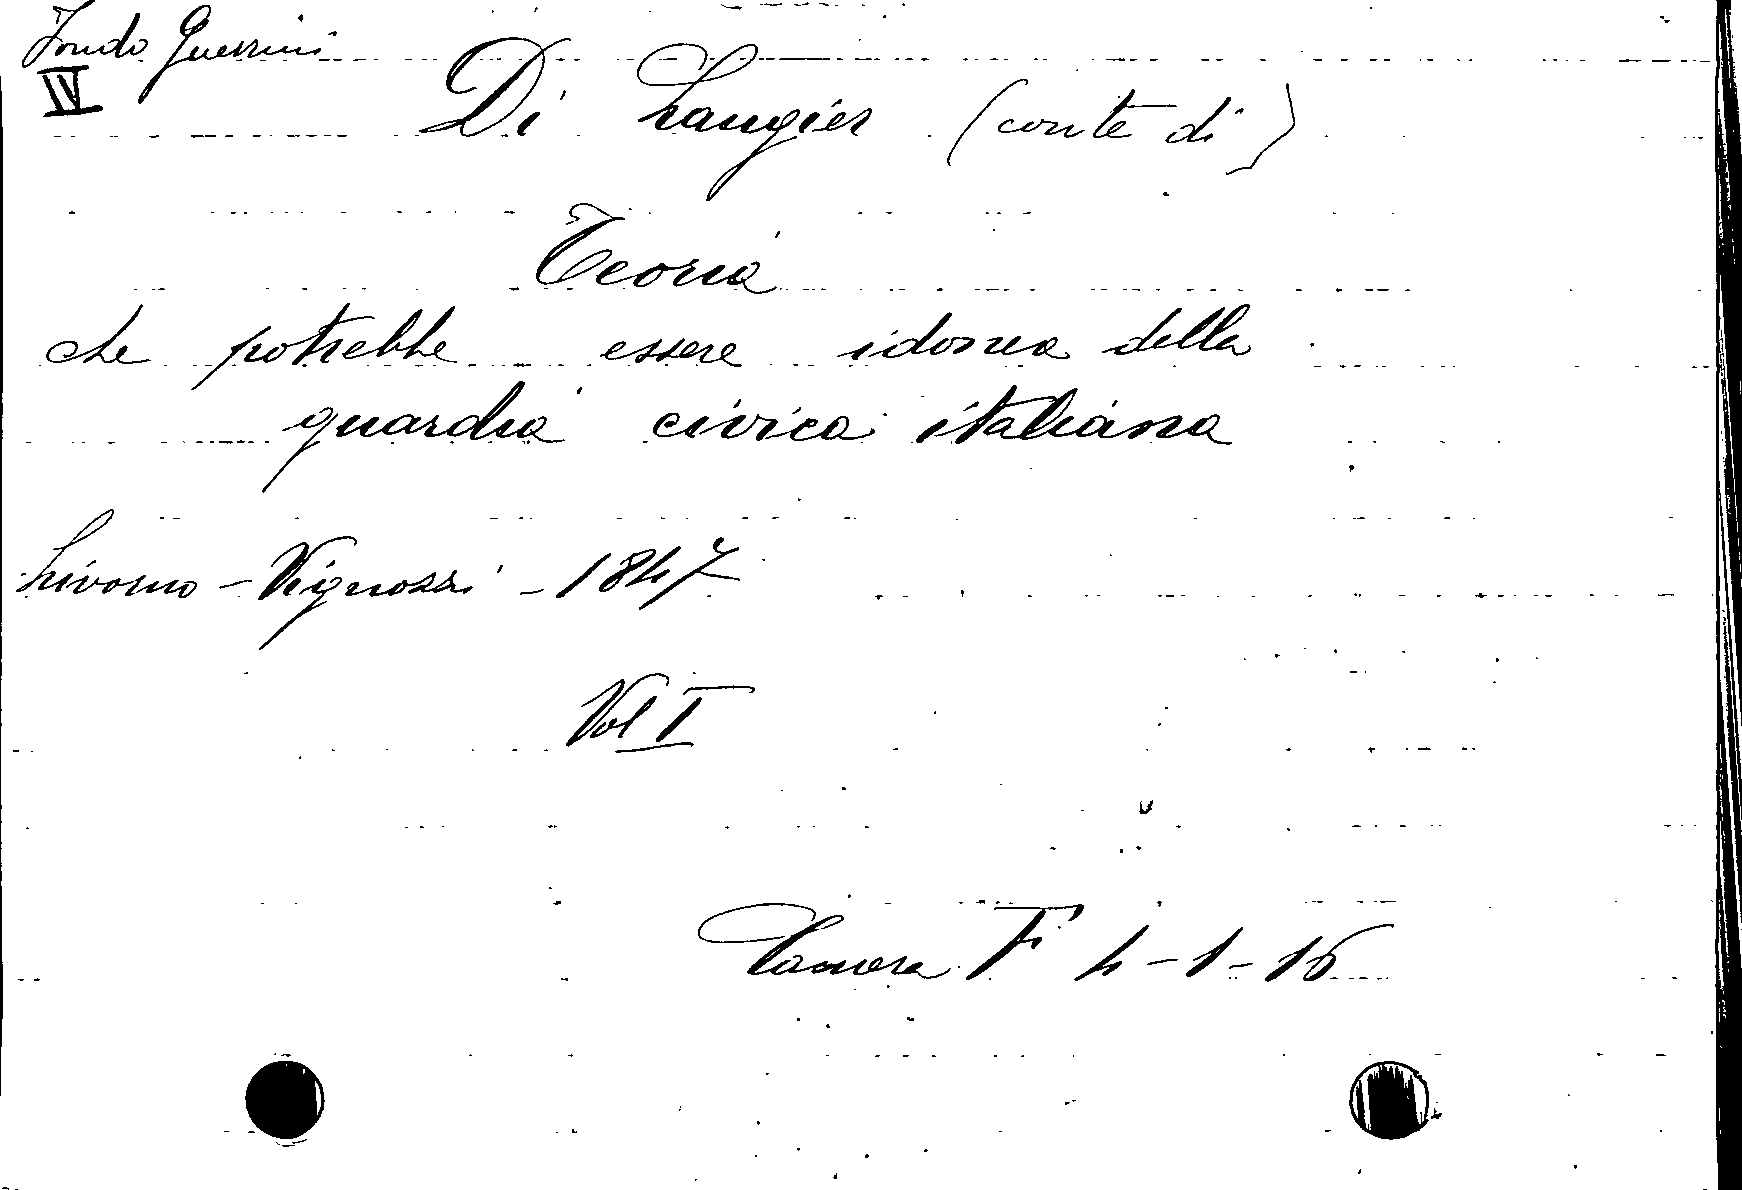 Fondo Guerrini
IV
Di Laugier (conte di)
Teoria
che potrebbe essere idonea della
guardia civica italiana
Livorno - Vignozzi - 1847
Vol I
Camera F 4-1-16